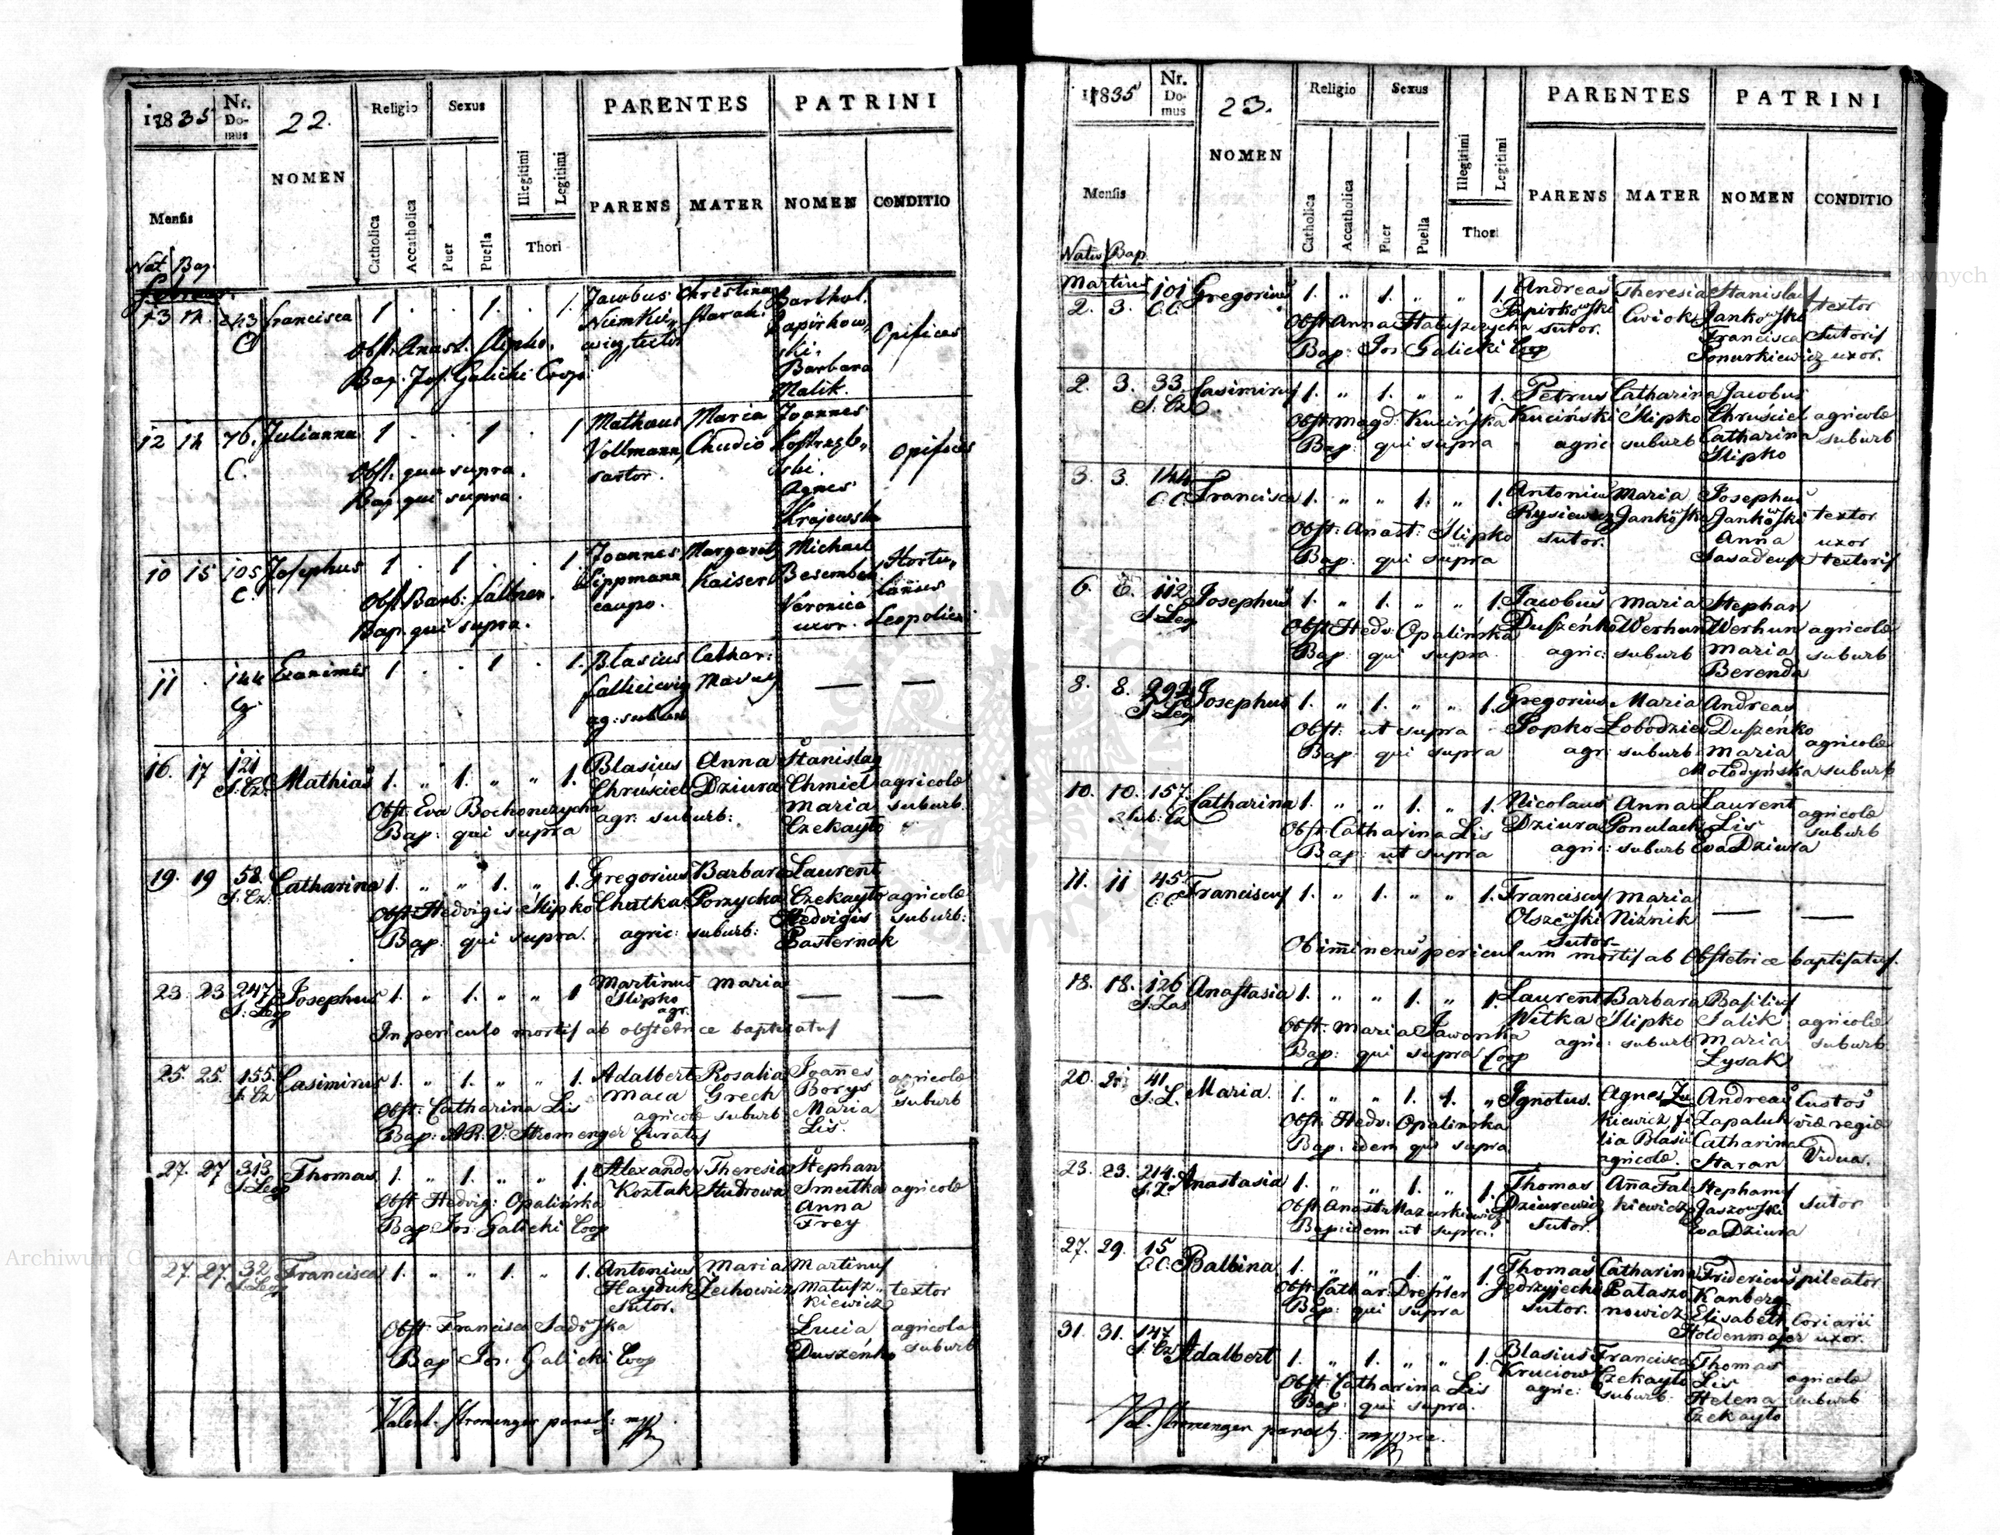 1835
Nr.
Do-
mus
22.
NOMEN
Religio
Sexus
PARENTES
PATRINI
Mensis
Catholica
Accatholica
Puer
Puella
Illegitimi
Legitimi
Thori
PARENS
MATER
NOMEN
CONDITIO
Nat. Bap.
13 14. 243 Francisca 1 . . 1. . 1. Jacobus Christina Barthol.
C
Obst: Anast. Slipko.
Bap. Jos. Galicki Coop.
Opifices
Barbara
Malik.
12 14 76. Julianna 1 . . 1 . 1 Mathaus Maria Joannes
C.
Vollmann Chudio
sartor.
Obst: quae supra.
Bap. qui supra.
Agnes
Krajewska
opifices
10 15 105 Josephus 1 . 1 . . 1. Joannes Margareth Michael
C.
Lippmann Kaiser
caupo.
Obst. Barb:
Bap. qui supra.
Veronica
uxor.
Hortu-
lanus
11 . 144 Exanimis 1 . . 1 . 1. Blasius Cathar:
ag: suburb
— —
16. 17 121 Mathias 1. „ 1. „ „ 1. Blasius Anna Stanislaus
S. Cz. Chruściel Dziura Chmiel agricolæ
Obst: Eva Bochonczycha agr: suburb: Maria suburb.
Bap: qui supra Czekayło
19. 19 58 Catharina 1. „ „ 1. „ 1. Gregorius Barbara Laurent
S. Cz. Chutka Porzycka Czekayło agricolæ
Obst: Hedvigis Slipko agric: suburb: Hedvigis suburb:
Bap: qui supra. Pasternak
23. 23 247 Josephus 1. „ 1. „ „ 1 Martinus Maria — —
S: Leop Slipko
agr.
In periculo mortis ab obstetrice baptisatus
25. 25. 155. Casimirus 1. „ 1. „ „ 1. Adalbert Rosalia Joañes agricolæ
S. Cz Maca Grech Borys suburb
Obst: Catharina Lis agricolæ suburb Maria
Bap: A.R.V. Stromenger Curatus Lis.
27. 27 313 Thomas 1. „ 1. „ „ 1. Alexander Theresia Stephan
S. Leop Kozłak Hudrowa Smutka agricolæ
Obst Hedvig: Opalińska Anna
Bap: Jos. Galicki Coop Frey
27. 27. 32 Francisca 1. „ „ 1. „ 1. Antonius Maria Martinus
S. Leop Hayduk Zechowicz Matusz- textor
Sutor. kiewicz
Obst: Francisca Sadoska Lucia agricola
Bap Jos. Galicki Coop Duszeńko suburb
Valent. Stromenger paroch: mpp.
1835
Nr.
Do-
mus
23.
NOMEN
Religio
Sexus
PARENTES
PATRINI
Mensis
Catholica
Accatholica
Puer
Puella
Illegitimi
Legitimi
Thori
PARENS
MATER
NOMEN
CONDITIO
Natus Bap.
Martius
2. 3. 101 Gregorius 1. „ 1. „ „ 1. Andreas Theresia Stanislaus textor
C.C. Papirkowski Cwiok Jankowski Sutoris
Obst: Anna sutor. Francisca uxor.
Bap: Jos Galicki Coop Ponurkiewicz
2. 3. 33. Casimirus 1. „ 1. „ „ 1. Petrus Catharina Jacobus
S. Cz Kuciński Slipko Chruściel agricolæ
Obst: Magd: Kucińska agric: suburb Catharina suburb
Bap: qui supra Slipko
3. 3. 144 Francisca 1. „ „ 1. „ 1. Antonius Maria Josephus
C.C. Rysiewicz Jankowska Jankowski textor
Obst: Anast: Slipko sutor. Anna uxor
Bap: qui supra textoris
6. 6. 112 Josephus 1. „ 1. „ „ 1. Jacobus Maria Stephan
S: Leop Duszeńko Werhun Werhun agricolæ
Obst: Hedv: Opalińska agric: suburb Maria suburb
Bap: qui supra Berenda
8. 8. 292 Josephus 1. „ 1. „ „ 1. Gregorius Maria Andreas
S Leop Popko Łobodziec Duszeńko
Obst: ut supra agr. suburb. Maria agricolæ
Bap: qui supra Mołodyńska suburb
10. 10. 157. Catharina 1. „ „ 1. „ 1. Nicolaus Anna Laurent agricolæ
Sub: Cz Dziura Ponulack Lis suburb
Obst: Catharina Lis agric: suburb Eva Dziura
Bap: ut supra
11. 11 45 Franciscus 1. „ 1. „ „ 1. Franciscus Maria — —
C.C. Olszewski Niznik
Sutor
Ob imminens periculum mortis ab Obstetrice baptisatus.
18. 18. 126 Anastasia 1. „ „ 1. „ 1. Laurent Barbara Basilius
S: Zas Witka Slipko Salik agricolæ
Obst: Maria Jaworska agric: suburb Maria suburb
Bap: qui supra Coop Lysak
20. 41 Maria. 1. „ „ 1. 1. „ Ignotus. Agnes Zu Andreas Custos
S: L. kiewicz fi Zapaluk viæ regiæ
Obst: Hedv: Opalińska lia Blasii Catharina
Bap: idem qui supra agricolæ. Staran Vidua.
23. 23. 214. Anastasia 1. „ „ 1. „ 1. Thomas Aña Fal Stephanus
S: Z. Dziurewicz kiewicz Jaszowski Sutor
Obst: Anasta Mazurkiewicz Sutor. Eva Dziura
Bap: idem ut supra.
27. 29. 15 Balbina 1. „ „ 1. „ 1. Thomas Catharina Fridericus pileator
C.C. Jędrzyjecki Pataszo Kanberg
Obst: Cathar: Dresler sutor. nowicz Elisabeth Coriarii
Bap: qui supra Holdenmajer uxor.
31. 31. 147 Adalbert 1. „ 1. „ „ 1. Blasius Francisca Thomas
S. Cz Kruciow Czekayło Lis agricolæ
Obst: Catharina Lis agric: suburb. Helena suburb
Bap: qui supra. Czekayło
Val. Stromenger paroch: mppria.
Archiwum Główne Akt Dawnych
Archiwum Główne Akt Dawnych